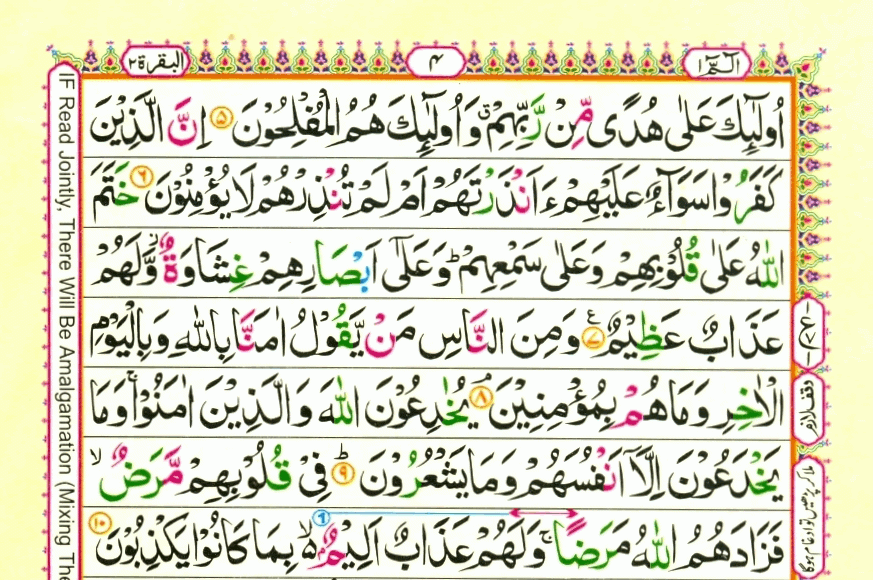 الٓمّٓ ١
٤
البقرة ٢
اُولٰٓئِكَ عَلٰى هُدًى مِّنْ رَّبِّهِمْ ۗ وَاُولٰٓئِكَ هُمُ الْمُفْلِحُوْنَ ٥ اِنَّ الَّذِيْنَ
كَفَرُوْا سَوَآءٌ عَلَيْهِمْ ءَاَنْذَرْتَهُمْ اَمْ لَمْ تُنْذِرْهُمْ لَا يُؤْمِنُوْنَ ٦ خَتَمَ
اللّٰهُ عَلٰى قُلُوْبِهِمْ وَعَلٰى سَمْعِهِمْ ؕ وَعَلٰٓى اَبْصَارِهِمْ غِشَاوَةٌ ۙ وَّلَهُمْ
عَذَابٌ عَظِيْمٌ ٧ ع وَمِنَ النَّاسِ مَنْ يَّقُوْلُ اٰمَنَّا بِاللّٰهِ وَبِالْيَوْمِ
الْاٰخِرِ وَمَا هُمْ بِمُؤْمِنِيْنَ ۘ ٨ يُخٰدِعُوْنَ اللّٰهَ وَالَّذِيْنَ اٰمَنُوْا ۚ وَمَا
يَخْدَعُوْنَ اِلَّاۤ اَنْفُسَهُمْ وَمَا يَشْعُرُوْنَ ؕ ٩ فِيْ قُلُوْبِهِمْ مَّرَضٌ ۙ
فَزَادَهُمُ اللّٰهُ مَرَضًا ۚ وَلَهُمْ عَذَابٌ اَلِيْمٌ ۙ۬ بِمَا كَانُوْا يَكْذِبُوْنَ ١٠
IF Read Jointly, There Will Be Amalgamation (Mixing The